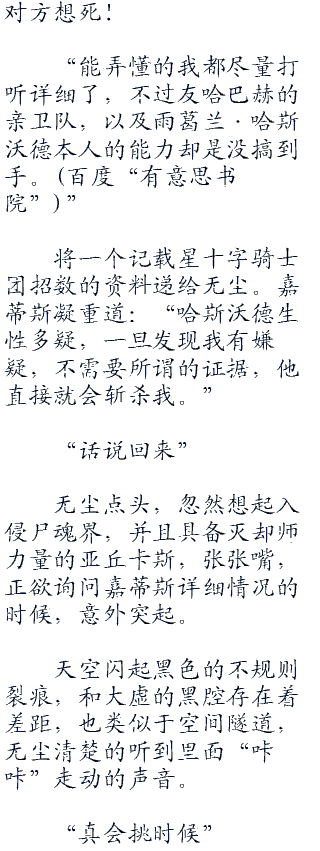 对方想死！
“能弄懂的我都尽量打
听详细了，不过友哈巴赫的
亲卫队，以及雨葛兰·哈斯
沃德本人的能力却是没搞到
手。(百度“有意思书
院”)”
将一个记载星十字骑士
团招数的资料递给无尘。嘉
蒂斯凝重道：“哈斯沃德生
性多疑，一旦发现我有嫌
疑，不需要所谓的证据，他
直接就会斩杀我。”
“话说回来”
无尘点头，忽然想起入
侵尸魂界，并且具备灭却师
力量的亚丘卡斯，张张嘴，
正欲询问嘉蒂斯详细情况的
时候，意外突起。
天空闪起黑色的不规则
裂痕，和大虚的黑腔存在着
差距，也类似于空间隧道，
无尘清楚的听到里面“咔
咔”走动的声音。
“真会挑时候”